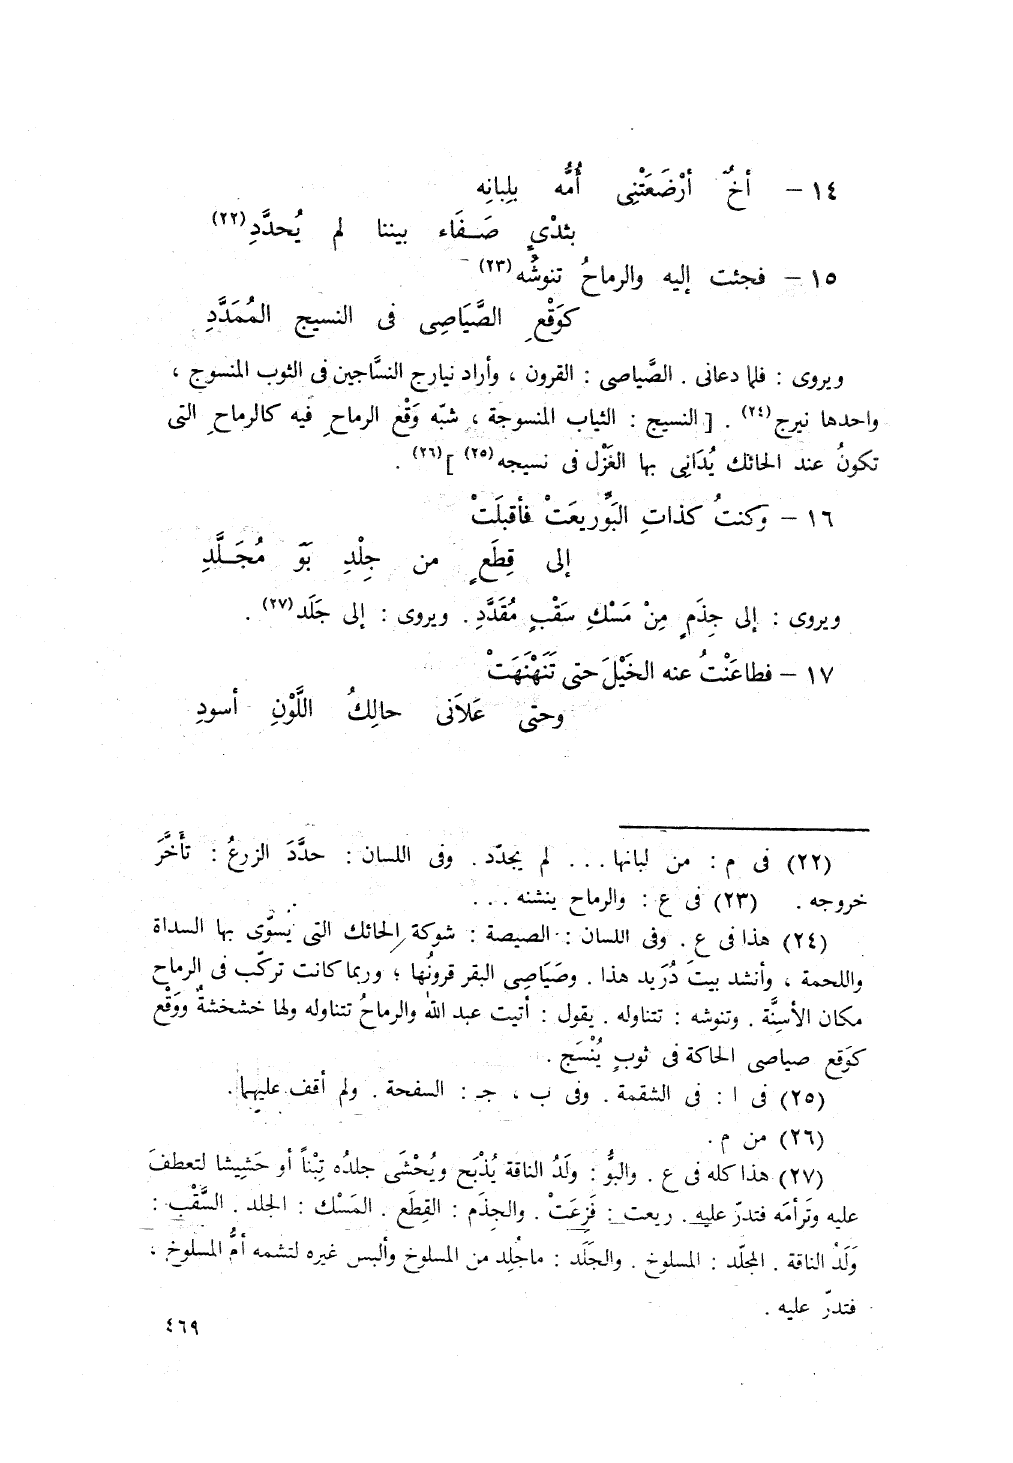 ١٤ – أخٌ أرْضَعَتْنِى أُمُّه بلِبانِه
بثدْىِ صَـفَاء بيننا لم يُحدَّدِ (٢٢)
١٥ – فجئت إليه والرماحُ تنوشُه (٢٣)
كوَقْعِ الصَّيَاصِى فى النسيج المُمَدَّدِ
ويروى : فلما دعانى . الصَّياصى : القرون ، وأراد نيارج النسَّاجين فى الثوب المنسوج ،
واحدها نيرج (٢٤) . [ النسيج : الثياب المنسوجة ، شبّه وَقْع الرماحِ فيه كالرماحِ التى
تكونُ عند الحائك يُدَانِى بها الغَزْل فى نسيجه (٢٥) ] (٢٦) .
١٦ – وكنتُ كذاتِ البَوِّ ريعَتْ فأقبلَتْ
إلى قِطَعٍ من جِلْدِ بَوّ مُجَـلَّدِ
ويروى : إلى جِذَمٍ مِنْ مَسْكِ سَقْبٍ مُقَدَّدِ . ويروى : إلى جَلَد (٢٧) .
١٧ – فطاعَنْتُ عنه الخَيْلَ حتى تَنَهْنَهَتْ
وحتى عَلاَنى حالِكُ اللَّوْنِ أسودِ
(٢٢) فى م : من لبانها . . . لم يجدّد . وفى اللسان : حدَّدَ الزرعُ : تأَخَّرَ
خروجه . (٢٣) فى ع : والرماح ينشنه . . .
(٢٤) هذا فى ع . وفى اللسان : الصيصة : شوكة الحائك التى يسوّى بها السداة
واللحمة ، وأنشد بيتَ دُرَيد هذا . وصَيَاصِى البقر قرونُها ؛ وربما كانت تركّب فى الرماح
مكان الأسِنَّة . وتنوشه : تتناوله . يقول : أتيت عبد اللهَ والرماحُ تتناوله ولها خشخشةٌ ووَقْع
كوَقع صياصى الحاكة فى ثوبٍ يُنْسَج .
(٢٥) فى ا : فى الشقمة . وفى ب ، جـ : السفحة . ولم أقف عليهما .
(٢٦) من م .
(٢٧) هذا كله فى ع . والبوُّ : ولَدُ الناقة يُذْبَح ويُحْشَى جلدُه تِبْناً أو حَشِيشا لتعطفَ
عليه وتَرأمَه فتدرّ عليه . ريعت : فَزِعَتْ . والجِذَم : القِطَع . المَسْك : الجلد . السَّقْب :
وَلَدُ الناقة . المجلّد : المسلوخ . والجَلَد : ماجُلِد من المسلوخ وألبس غيره لتشمه أمُّ المسلوخ ،
فتدرّ عليه .
٤٦٩